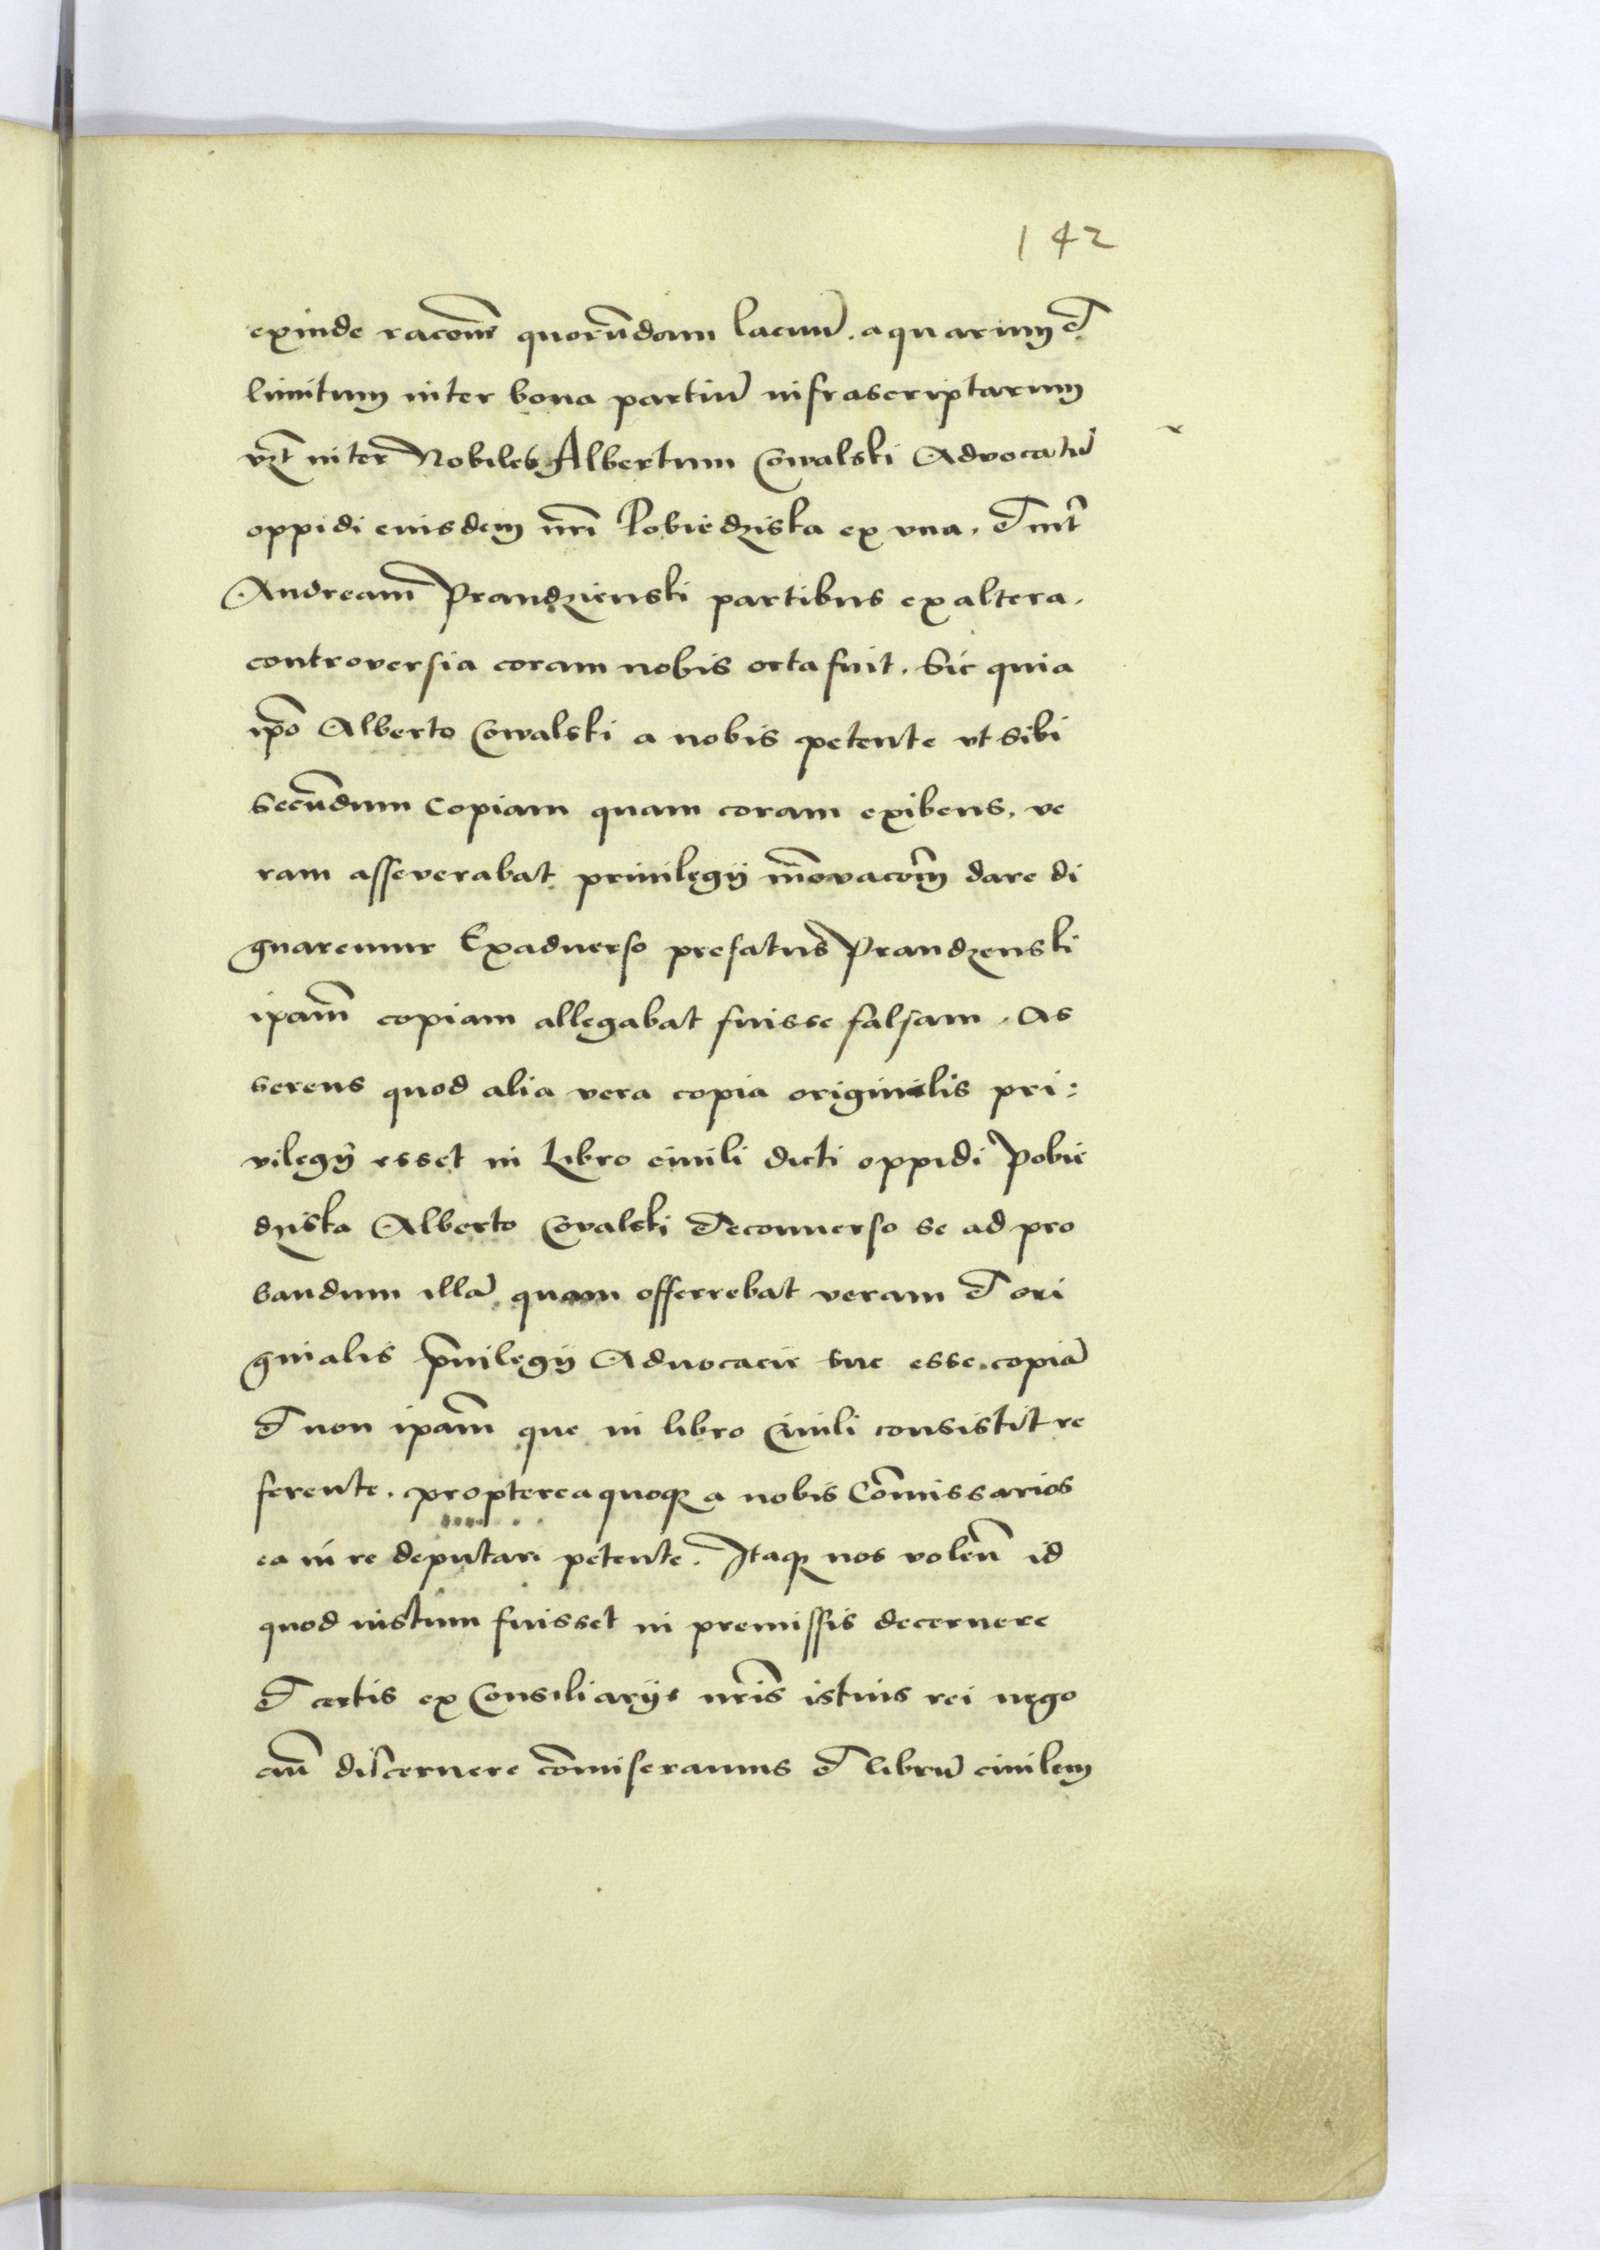 142
exinde racōne quorūdam lacuū . aquarum et
limitum inter bona partiū infrascriptarum
vz̄t inter Nobiles Albertum Cowalski Advocatū
oppidi eiusdem nr̄i Pobiedziska ex vna . et int̄
Andream̄ Prandzienski partibus ex altera .
controversia coram nobis orta fuit . Sic quia
ip̄o Alberto Cowalski a nobis petente vt sibi
secūdum copiam quam coram exibens , ve
ram asseverabat privilegij innovacōm dare di
gnaremur Exadverso prefatus Prandzenski
ipam̄ copiam allegabat fuisse falsam . As
serens quod alia vera copia originalis pri:
vilegij esset in Libro civili dicti oppidi Pobie
dziska Alberto Covalski et econverso se ad pro
bandum illā quam offerrebat veram et ori
ginalis p̄vilegij Advocacie sue esse . copiā
et non ipam̄ que in libro Civili consistit re
ferente . propterea quoqꝫ a nobis Com̄issarios
ea in re deputari petente . Itaqꝫ nos volen̄ id
quod iustum fuisset in premissis decernere
et certis ex Consiliarijs nr̄is istius rei nego
ciū discernere com̄iseramus et librū civilem